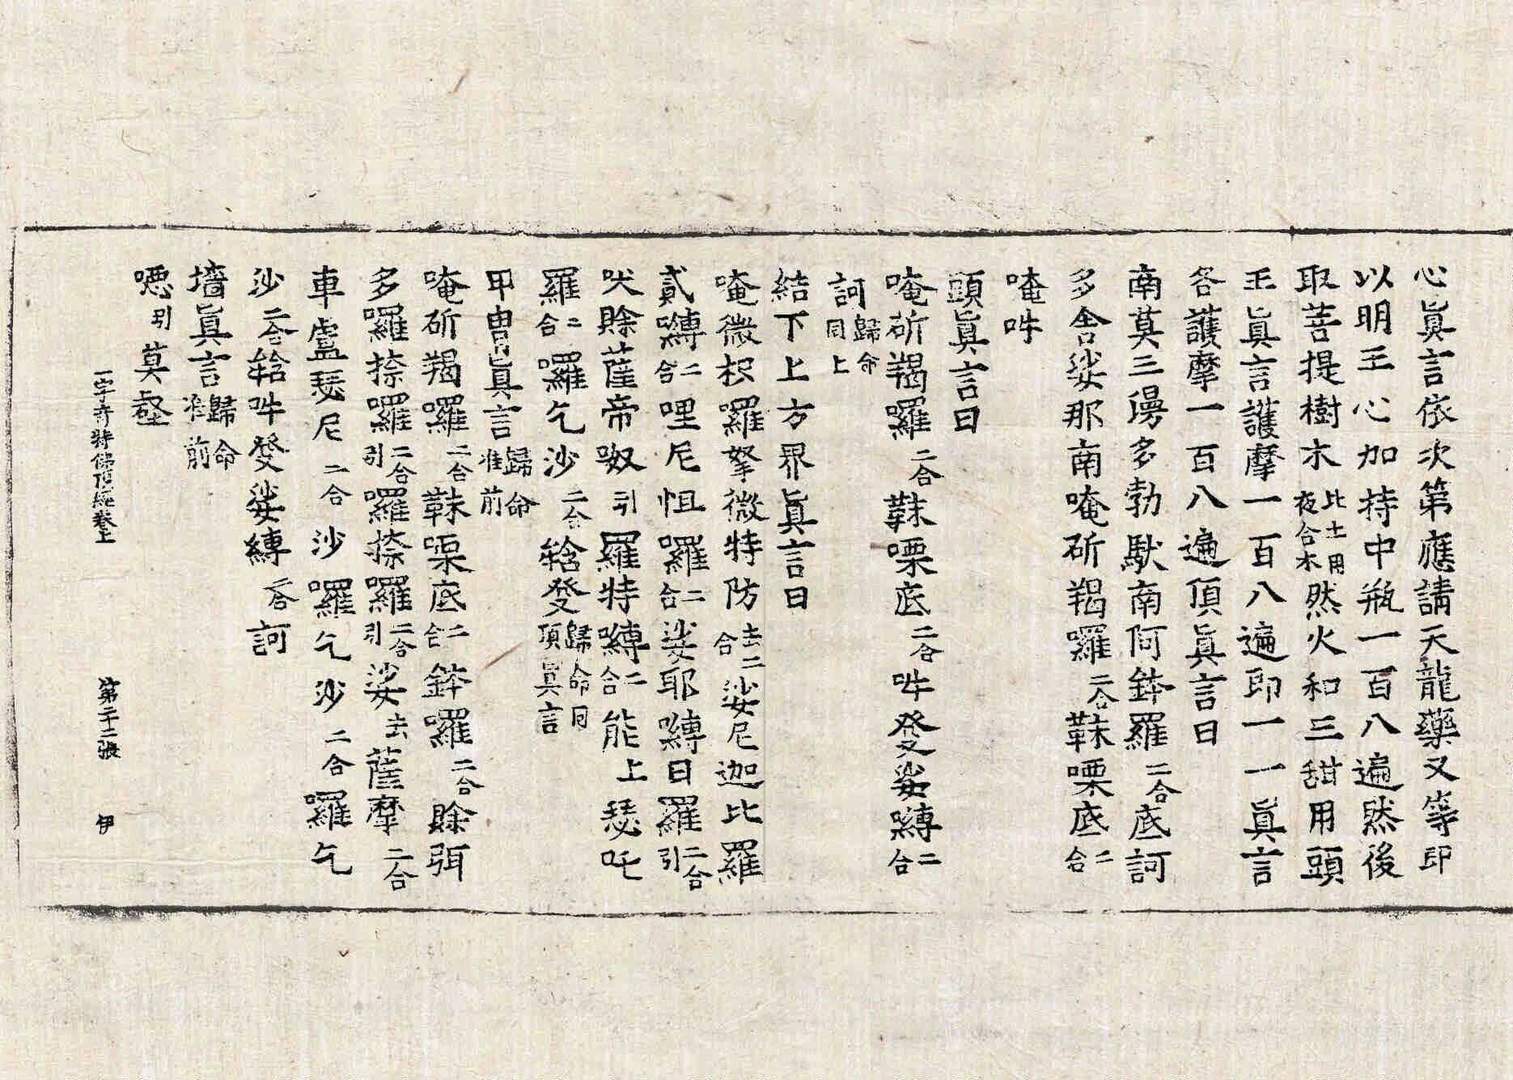 心眞言依次第應請天龍藥叉等印
以明王心加持中瓶一百八遍然後
取菩提樹木此土用夜合木然火和三甜用頭
王眞言護摩一百八遍即一一眞言
各護摩一百八遍頂眞言曰
南莫三漫多勃馱南阿鉢羅二合底訶
多舍娑那南唵斫羯羅二合靺㗚底二合
唵吽
頭眞言曰
唵斫羯羅二合靺㗚底二合吽發娑嚩二合
訶歸命同上
結下上方界眞言曰
唵微枳羅拏微特防去二合娑尼迦比羅
貳嚩二合哩尼怛羅二合娑耶嚩日羅二合引
吠賒薩帝奴引羅特嚩二合能上瑟吒
羅二合囉乞沙二合䤈發歸命同頂眞言
甲冑眞言歸命准前
唵斫羯囉二合靺㗚底二合鉢囉二合賒弭
多囉捺囉二合引囉捺羅二合引娑去薩摩二合
車盧瑟尼二合沙囉乞沙二合羅乞
沙二合䤈吽發娑縛二合訶
墻眞言歸命准前
噁引莫壑
一字奇特佛頂經卷上 第二十二張 伊